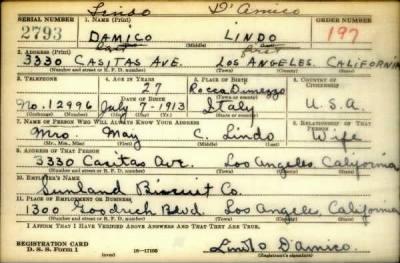 Lindo D'Amico
SERIAL NUMBER 1. NAME (Print) ORDER NUMBER
2793 DAMICO LINDO 197
(Middle)
2. ADDRESS (Print)
3330 CASITAS AVE. LOS ANGELES. CALIFORNIA
(Number and street or R. F. D. number) (Town) (County) (State)
3. TELEPHONE 4. AGE IN YEARS 5. PLACE OF BIRTH 6. COUNTRY OF CITIZENSHIP
27 Rocca
DATE OF BIRTH
No. 12996 July 7-1913 Italy U.S.A.
(Exchange) (Number) (Mo.) (Day) (Yr.) (State or country)
7. NAME OF PERSON WHO WILL ALWAYS KNOW YOUR ADDRESS 8. RELATIONSHIP OF THAT PERSON
Mrs. May C. Lindo Wife
(Mr., Mrs., Miss) (First) (Middle) (Last)
9. ADDRESS OF THAT PERSON
3330 Casitas Ave. Los Angeles, California
(Number and street or R. F. D. number) (Town) (County) (State)
10. EMPLOYER'S NAME
Sunland Biscuit Co.
11. PLACE OF EMPLOYMENT OR BUSINESS
1300 Goodrich Blvd. Los Angeles, California
(Number and street or R. F. D. number) (Town) (County) (State)
I AFFIRM THAT I HAVE VERIFIED ABOVE ANSWERS AND THAT THEY ARE TRUE.
REGISTRATION CARD
D. S. S. Form 1 16—17105 Lindo D'Amico.